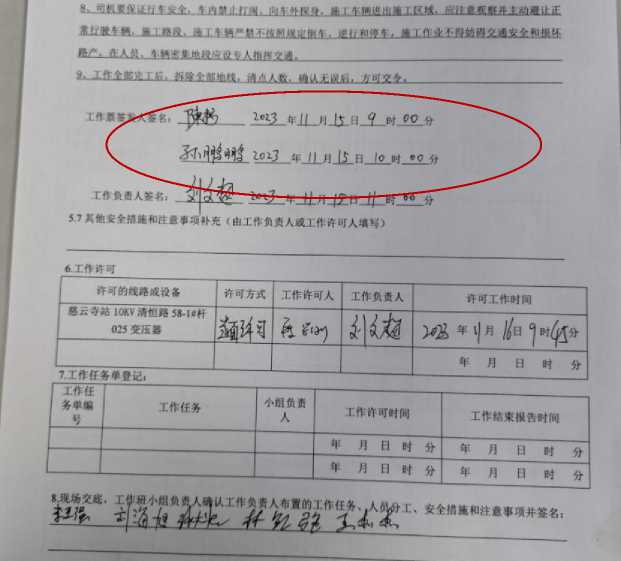 8、司机要保证行车安全，车内禁止打闹、向车外探身，施工车辆进出施工区域，应注意观察并主动避让正
常行驶车辆，施工路段，施工车辆严禁不按照规定倒车，逆行和停车，施工作业不得妨碍交通安全和损坏
路产。在人员、车辆密集地段应设专人指挥交通。
9、工作全部完工后，拆除全部地线，清点人数，确认无误后，方可交令。
工作票签发人签名： 2023 年 11 月 15 日 9 时 00 分
孙鹏鹏 2023 年 11 月 15 日 10 时 00 分
工作负责人签名：刘文超 2023 年 11 月 15 日 11 时 00 分
5.7 其他安全措施和注意事项补充（由工作负责人或工作许可人填写）
6.工作许可
许可的线路或设备 许可方式 工作许可人 工作负责人 许可工作时间
慈云寺站 10KV 清恒路 58-1#杆 025 变压器 当面许可 刘文超 2023 年 11 月 16 日 9 时 45 分
年 月 日 时 分
7.工作任务单登记：
工作任务单编号 工作任务 小组负责人 工作许可时间 工作结束报告时间
年 月 日 时 分 年 月 日 时 分
年 月 日 时 分 年 月 日 时 分
8.现场交底，工作班小组负责人确认工作负责人布置的工作任务、人员分工、安全措施和注意事项并签名：